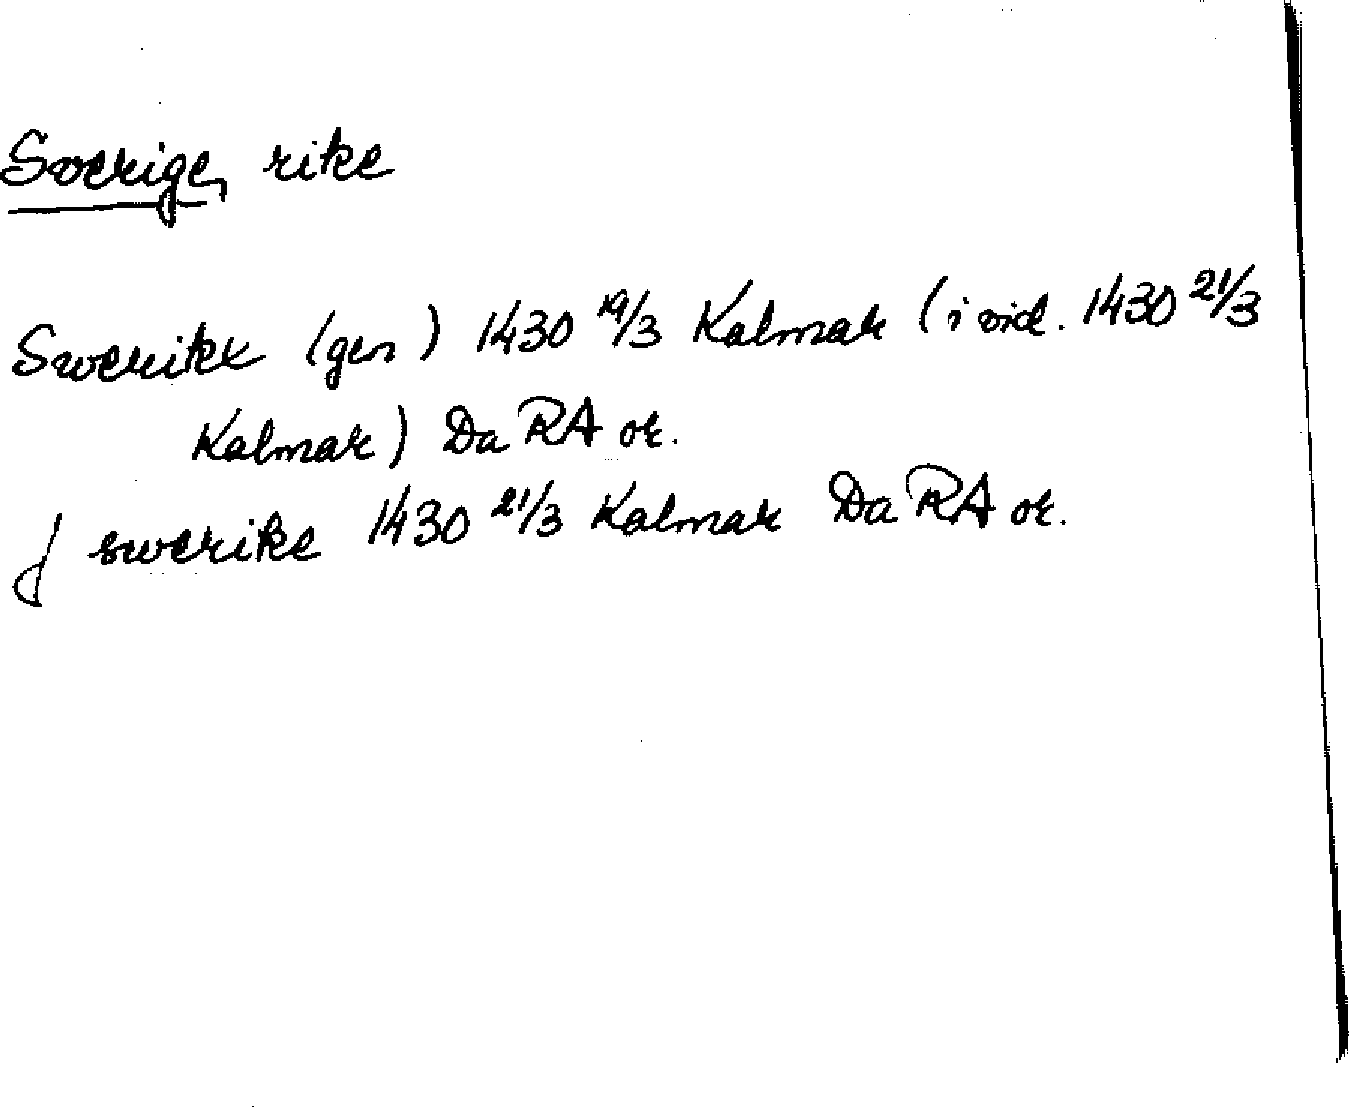 Sverige, rike
Swerikx (gen) 1430 19/3 Kalmar (i vid. 1430 21/3
Kalmar) Da RA or.
J swerike 1430 21/3 Kalmar Da RA or.